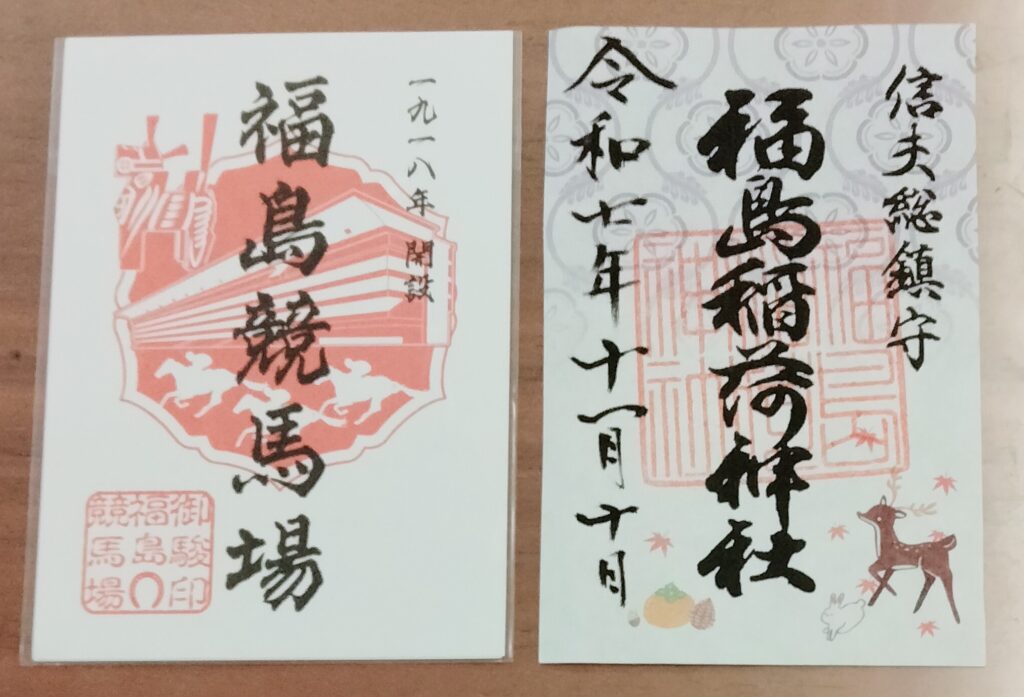 一九一八年 開設
福島競馬場
御駿印
福島
競馬場
信夫総鎮守
福島稲荷神社
令和七年十一月十日